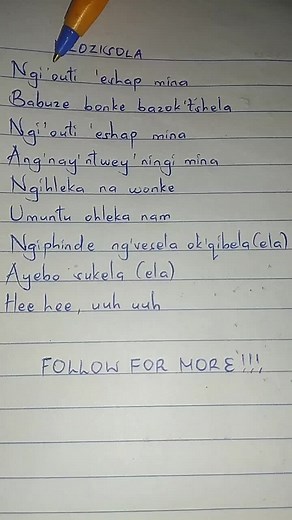 Ngi'outi 'eshap mina
Babuze bonke bazok'tshela
Ngi'outi 'eshap mina
Ang'nay'ntwey'ningi mina
Ngihleka na wonke
Umuntu ohleka nam
Ngiphinde ng'vesela ok'qibela (ela)
Ayebo sukela (ela)
Hee hee, uuh uuh
FOLLOW FOR MORE!!!